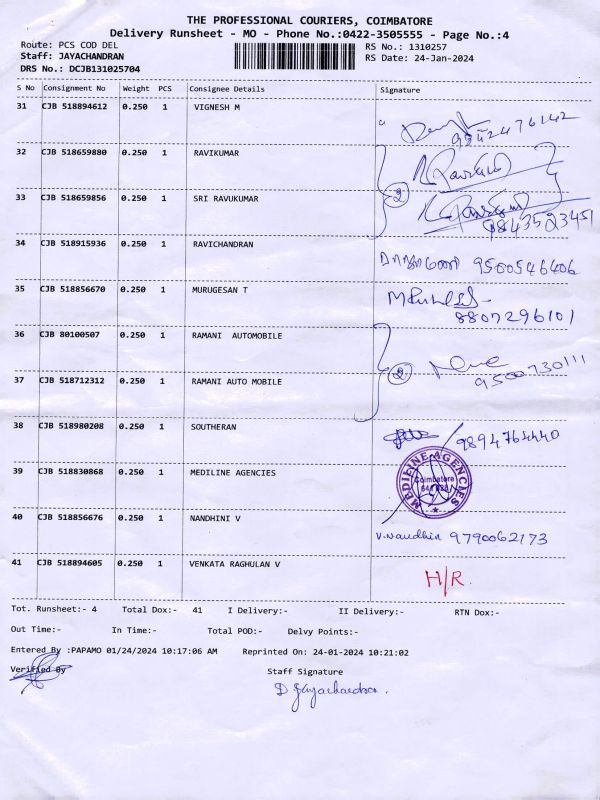 THE PROFESSIONAL COURIERS, COIMBATORE
Delivery Runsheet - MO - Phone No.:0422-3505555 - Page No.:4
Route: PCS COD DEL
RS No.: 1310257
Staff: JAYACHANDRAN
RS Date: 24-Jan-2024
DRS No.: DCJB131025704
S No Consignment No Weight PCS Consignee Details Signature
31 CJB 518894612 0.250 1 VIGNESH M
9952476142
32 CJB 518659880 0.250 1 RAVIKUMAR
33 CJB 518659856 0.250 1 SRI RAVUKUMAR
2
9843523451
34 CJB 518915936 0.250 1 RAVICHANDRAN
9500546406
35 CJB 518856670 0.250 1 MURUGESAN T
8807296101
36 CJB 80100507 0.250 1 RAMANI AUTOMOBILE
2
9500730111
37 CJB 518712312 0.250 1 RAMANI AUTO MOBILE
38 CJB 518980208 0.250 1 SOUTHERAN
9894764440
39 CJB 518830868 0.250 1 MEDILINE AGENCIES
MEDILINE AGENCIES
Coimbatore
40 CJB 518856676 0.250 1 NANDHINI V
V. Nandhini 9790062173
41 CJB 518894605 0.250 1 VENKATA RAGHULAN V
H/R.
Tot. Runsheet:- 4 Total Dox:- 41 I Delivery:- II Delivery:- RTN Dox:-
Out Time:- In Time:- Total POD:- Delvy Points:-
Entered By :PAPAMO 01/24/2024 10:17:06 AM Reprinted On: 24-01-2024 10:21:02
Verified By Staff Signature
D Jayachandran